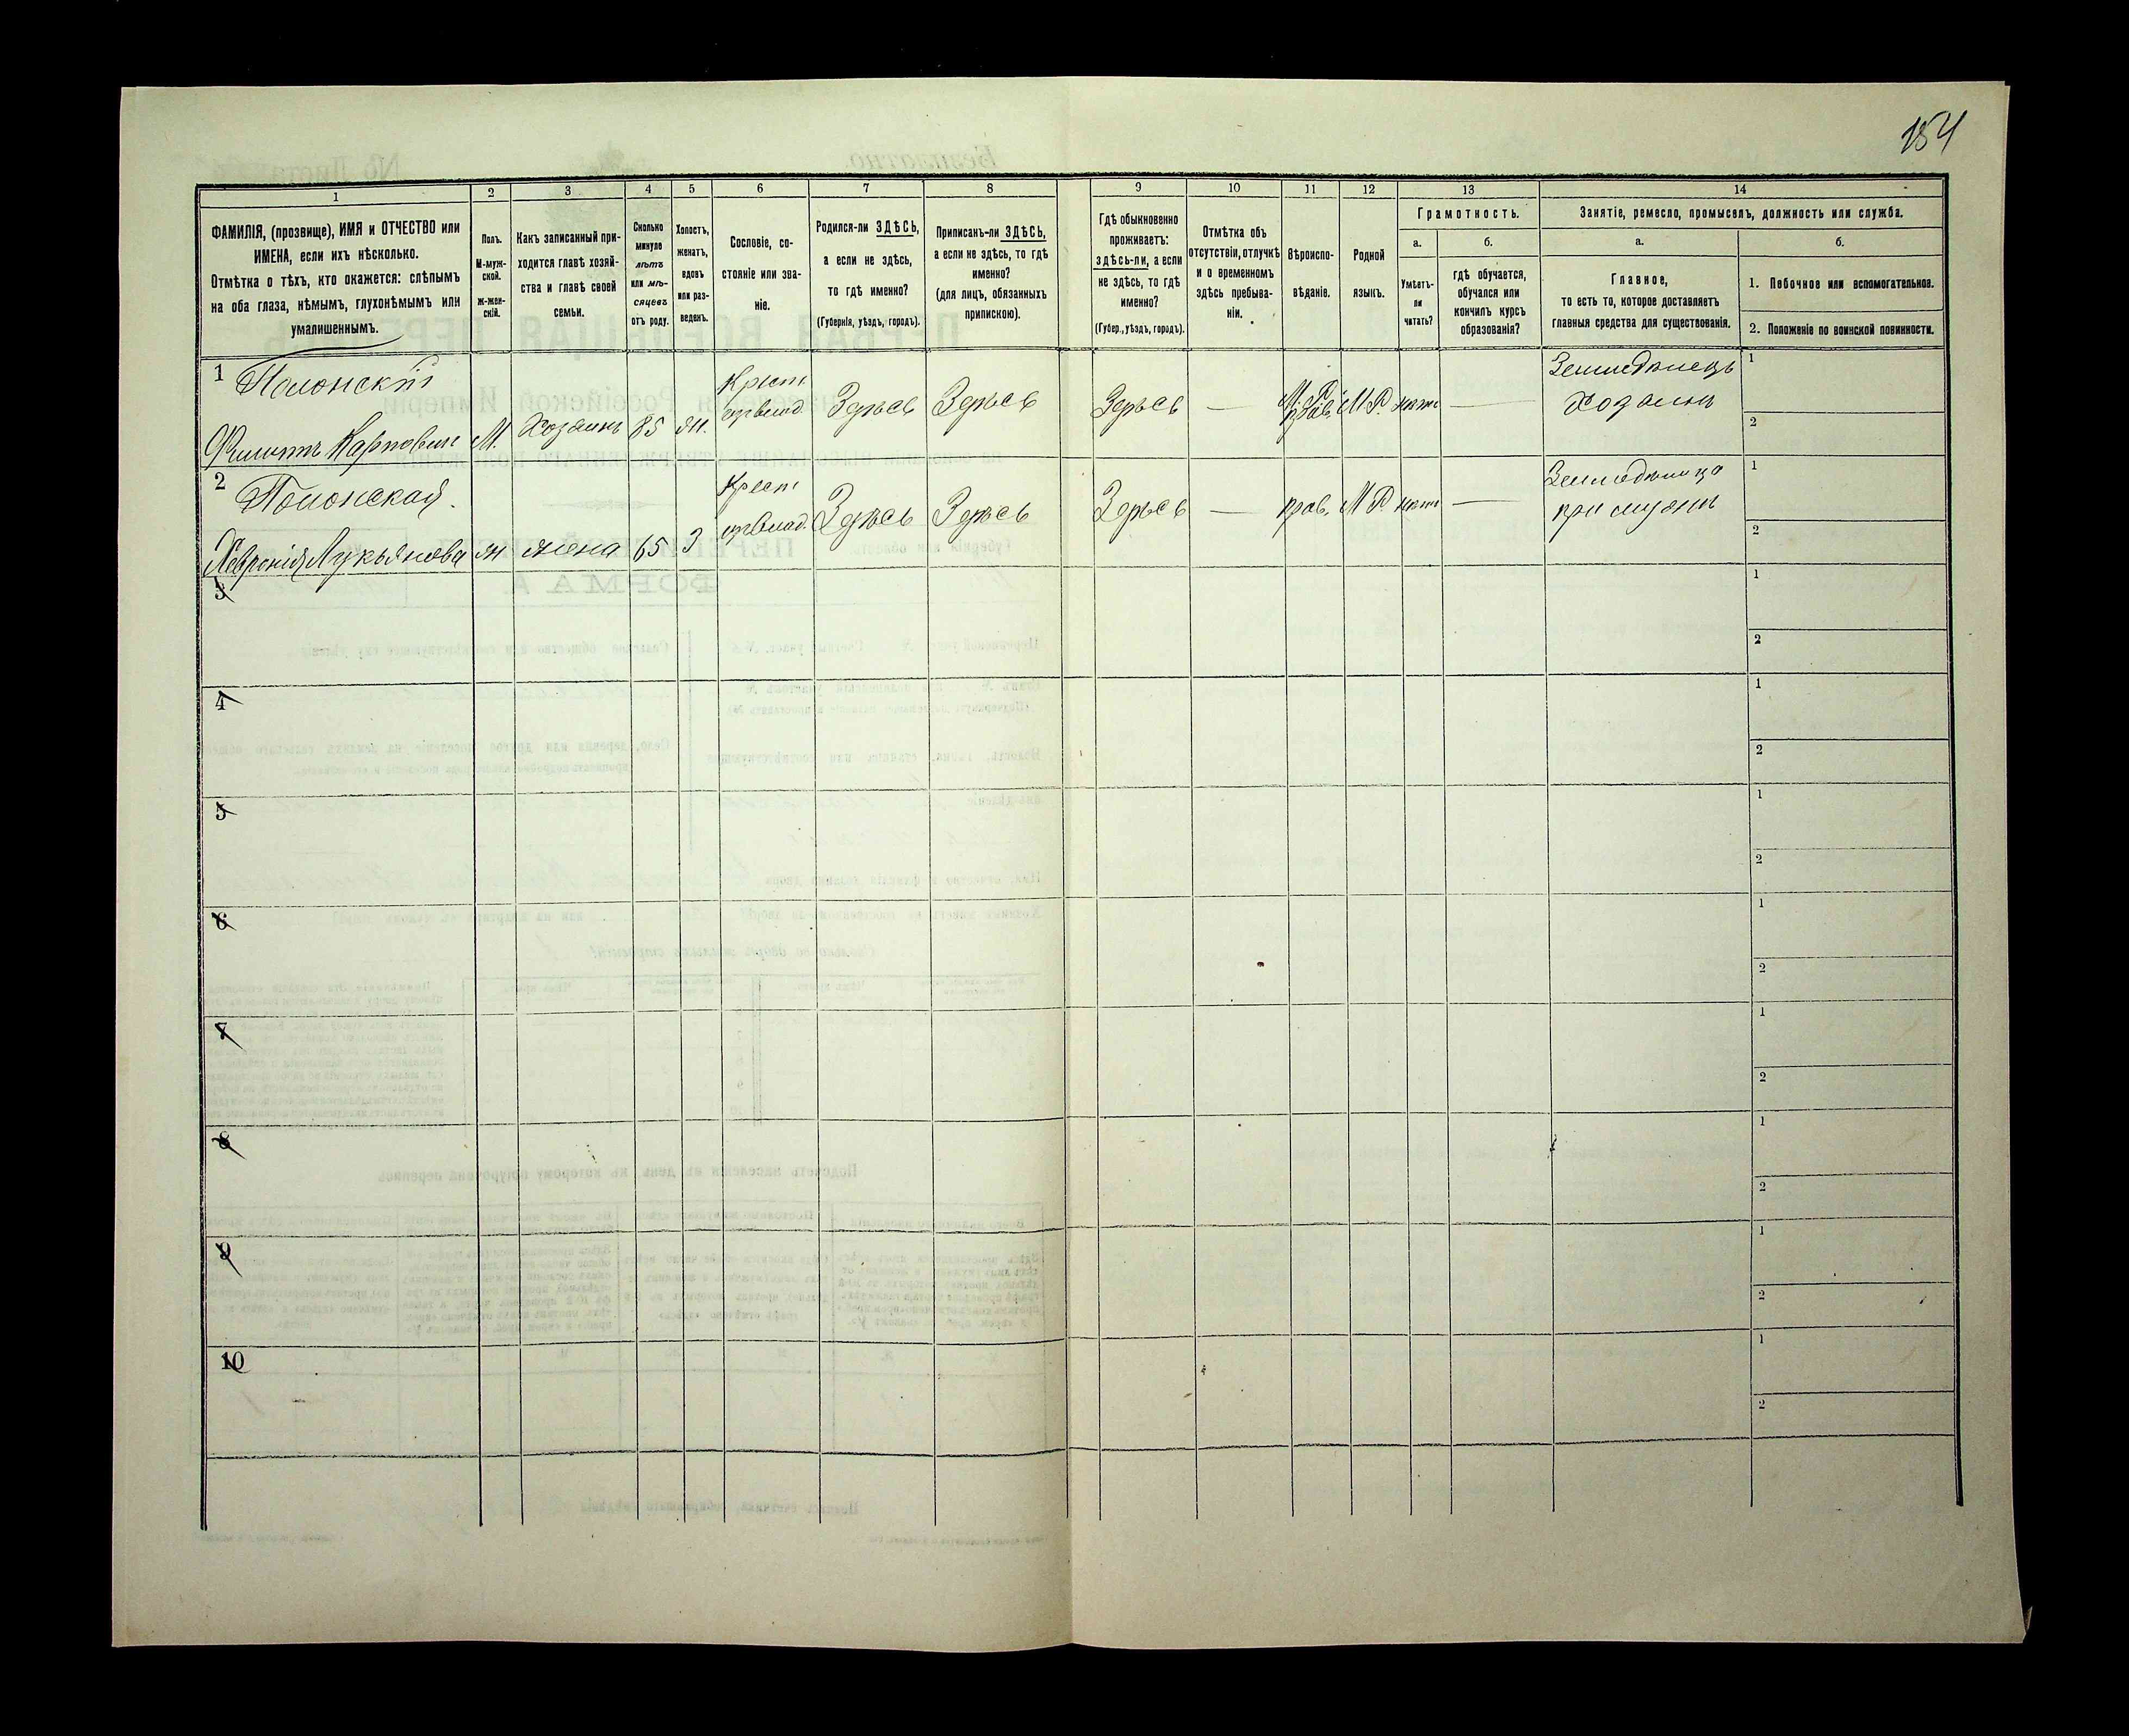 184
1
2
3
4
5
6
7
8
9
10
11
12
13
14
ФАМИЛІЯ, (прозвище), ИМЯ и ОТЧЕСТВО или
ИМЕНА, если ихъ нѣсколько.
Отмѣтка о тѣхъ, кто окажется: слѣпымъ
на оба глаза, нѣмымъ, глухонѣмымъ или
умалишеннымъ.
Полъ.
М-муж-
ской.
ж-жен-
скій.
Какъ записанный при-
ходится главѣ хозяй-
ства и главѣ своей
семьи.
Сколько
минуло
лѣтъ
или мѣ-
сяцевъ
отъ роду.
Холостъ,
женатъ,
вдовъ
или раз-
веденъ.
Сословіе, со-
стояніе или зва-
ніе.
Родился-ли ЗДѢСЬ,
а если не здѣсь,
то гдѣ именно?
(Губернія, уѣздъ, городъ).
Приписанъ-ли ЗДѢСЬ,
а если не здѣсь, то гдѣ
именно?
(для лицъ, обязанныхъ
припискою).
Гдѣ обыкновенно
проживаетъ:
здѣсь-ли, а если
не здѣсь, то гдѣ
именно?
(Губер., уѣздъ, городъ).
Отмѣтка объ
отсутствіи, отлучкѣ
и о временномъ
здѣсь пребыва-
ніи.
Вѣроиспо-
вѣданіе.
Родной
языкъ.
Грамотность.
а.
б.
Умѣетъ-
ли
читать?
гдѣ обучается,
обучался или
кончилъ курсъ
образованія?
Занятіе, ремесло, промыселъ, должность или служба.
а.
б.
Главное,
то есть то, которое доставляетъ
главныя средства для существованія.
1. Побочное или вспомогательное.
2. Положеніе по воинской повинности.
1 Полонскій
Филиппъ Карповичъ М. Хозяинъ 85 Ж. Крест. Здѣсь Здѣсь Здѣсь — Прав. М.Р. нѣтъ — Земледѣлецъ
Хозяинъ
1
2
2 Полонская.
Февронія Лукьянова Ж жена 65 З Крест Здѣсь Здѣсь Здѣсь — прав. М Р нѣтъ — Земледѣлица
при мужѣ
1
2
3
1
2
4
1
2
5
1
2
6
1
2
7
1
2
8
1
2
9
1
2
10
1
2